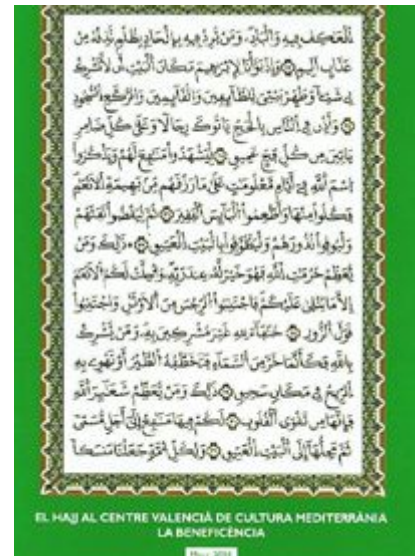 اَلْعَٰكِفُ فِيهِ وَالْبَادِۦ وَمَنْ يُّرِدْ فِيهِ بِإِلْحَادٍۢ بِظُلْمٍ نُّذِقْهُ مِنْ
عَذَابٍ اَلِيمٍ وَإِذْ بَوَّأْنَا لِإِبْرَٰهِيمَ مَكَانَ اَلْبَيْتِ أَن لَّا تُشْرِكْ
بِے شَيْـٔاً وَطَهِّرْ بَيْتِيَ لِلطَّآئِفِينَ وَالْقَآئِمِينَ وَالرُّكَّعِ اِلسُّجُودِ
وَأَذِّن فِے اِلنَّاسِ بِالْحَجِّ يَاتُوكَ رِجَالاً وَعَلَىٰ كُلِّ ضَامِرٍ
يَاتِينَ مِن كُلِّ فَجٍّ عَمِيقٍ لِّيَشْهَدُواْ مَنَٰفِعَ لَهُمْ وَيَذْكُرُواْ
اُسْمَ اَللَّهِ فِے أَيَّامٍ مَّعْلُومَٰتٍ عَلَىٰ مَا رَزَقَهُم مِّنۢ بَهِيمَةِ اِلَانْعَٰمِ
فَكُلُواْ مِنْهَا وَأَطْعِمُواْ اُلْبَآئِسَ اَلْفَقِيرَ ثُمَّ لِيَقْضُواْ تَفَثَهُمْ
وَلْيُوفُواْ نُذُورَهُمْ وَلْيَطَّوَّفُواْ بِالْبَيْتِ اِلْعَتِيقِ ذَٰلِكَ وَمَنْ
يُّعَظِّمْ حُرُمَٰتِ اِللَّهِ فَهُوَ خَيْرٌ لَّهُۥ عِندَ رَبِّهِۦ وَأُحِلَّتْ لَكُمُ اُلَانْعَٰمُ
إِلَّا مَا يُتْلَىٰ عَلَيْكُمْ فَاجْتَنِبُواْ اُلرِّجْسَ مِنَ اَلَاوْثَٰنِ وَاجْتَنِبُواْ
قَوْلَ اَلزُّورِ حُنَفَآءَ لِلهِ غَيْرَ مُشْرِكِينَ بِهِۦ وَمَنْ يُّشْرِكْ
بِاللَّهِ فَكَأَنَّمَا خَرَّ مِنَ اَلسَّمَآءِ فَتَخَطَّفُهُ اُلطَّيْرُ أَوْ تَهْوِے بِهِ
اِلرِّيحُ فِے مَكَانٍ سَحِيقٍ ذَٰلِكَ وَمَنْ يُّعَظِّمْ شَعَٰٓئِرَ اَللَّهِ
فَإِنَّهَا مِن تَقْوَى اَلْقُلُوبِ لَكُمْ فِيهَا مَنَٰفِعُ إِلَىٰ أَجَلٍ مُّسَمّىً
ثُمَّ مَحِلُّهَآ إِلَى اَلْبَيْتِ اِلْعَتِيقِ وَلِكُلِّ أُمَّةٍ جَعَلْنَا مَنسَكاً
EL HAJJ AL CENTRE VALENCIÀ DE CULTURA MEDITERRÀNIA
LA BENEFICÈNCIA